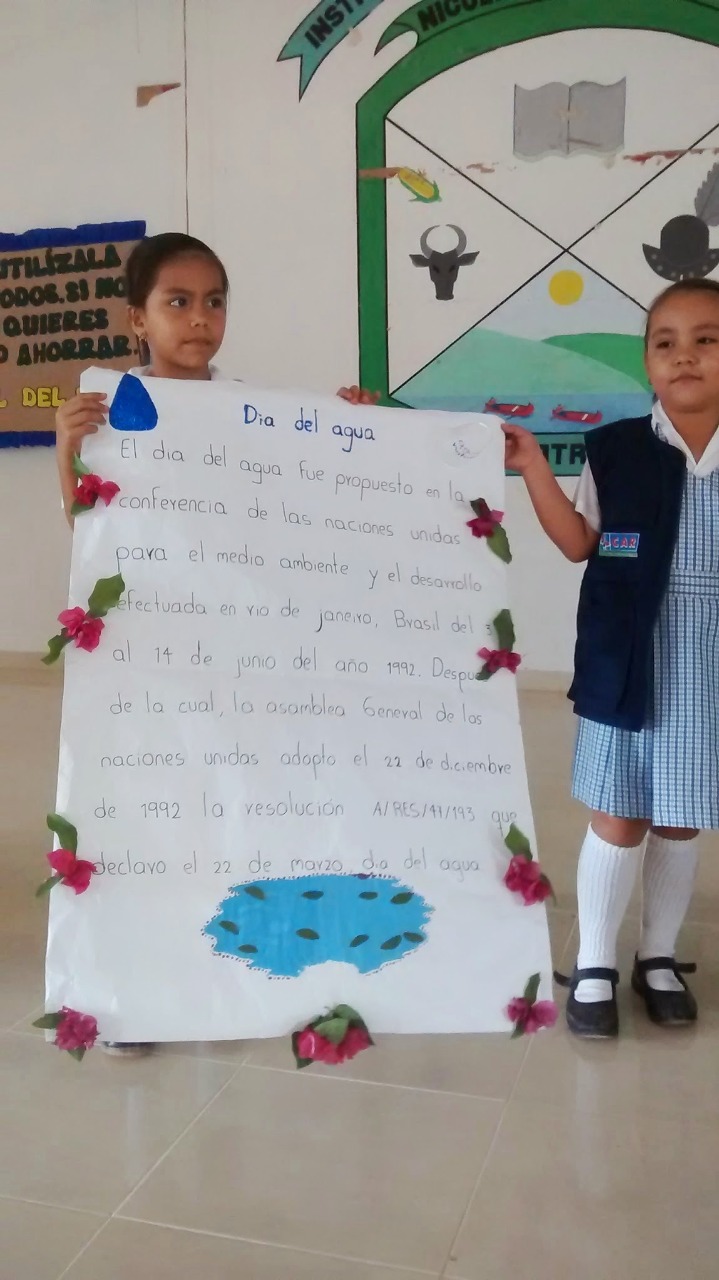 NICOL
UTILÍZALA
TODOS. SI NO
QUIERES
AHORRAR.
DEL
Dia del agua
El dia del agua fue propuesto en la
conferencia de las naciones unidas
para el medio ambiente y el desarrollo
efectuada en rio de janeiro, Brasil del 3
al 14 de junio del año 1992. Despues
de la cual, la asamblea General de las
naciones unidas adopto el 22 de diciembre
de 1992 la resolución A/RES/47/193 que
declaro el 22 de marzo dia del agua